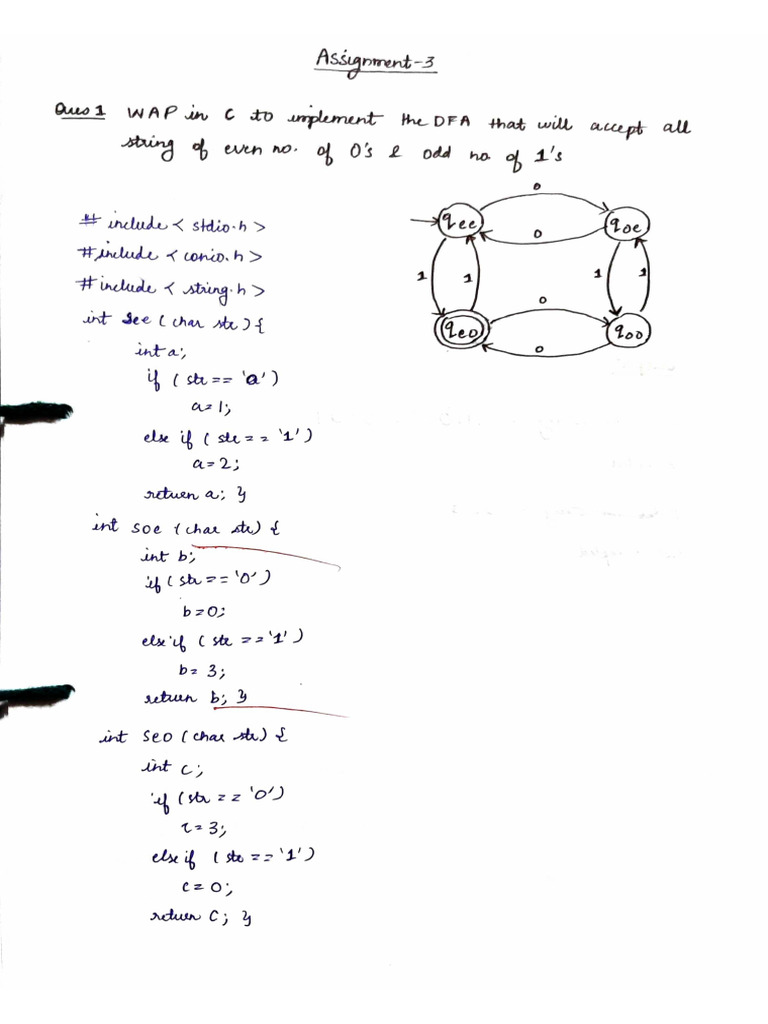 Assignment-3
Ques 1 WAP in C to implement the DFA that will accept all
string of even no. of 0's & odd no. of 1's
# include < stdio.h >
# include < conio.h >
# include < string.h >
int see ( char str ) {
int a;
if ( str == 'a' )
a=1;
else if ( str == '1' )
a=2;
return a; }
int soe ( char str) {
int b;
if ( str == '0' )
b=0;
else if ( str == '1' )
b= 3;
return b; }
int seo ( char str) {
int c;
if (str == '0')
c= 3;
else if ( str == '1' )
c= 0;
return c; }
0
qee
qoe
0
1
1
1
1
0
qeo
qoo
0